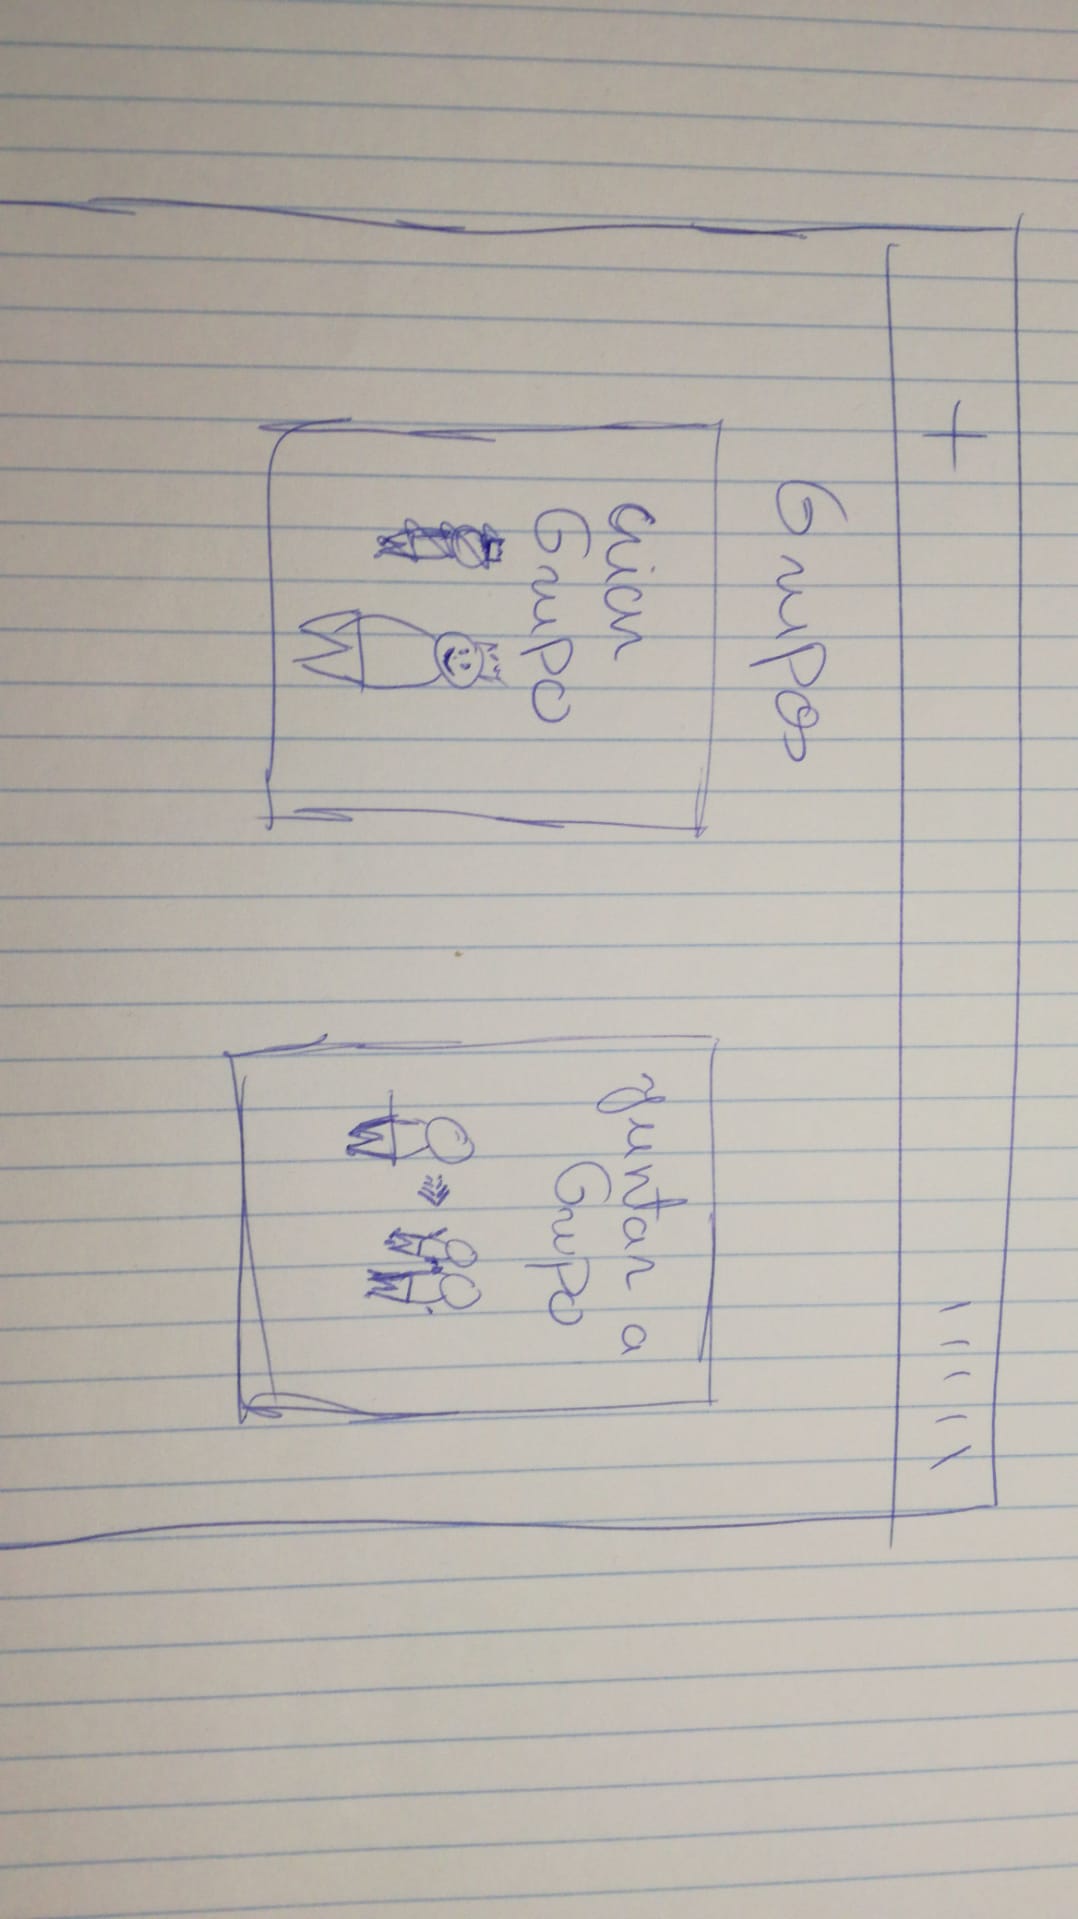 Grupos
criar
Grupo
juntar a
Grupo